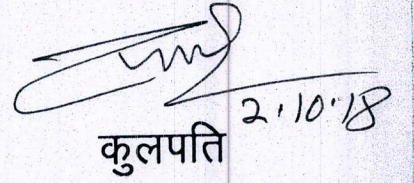 2.10.18
कुलपति